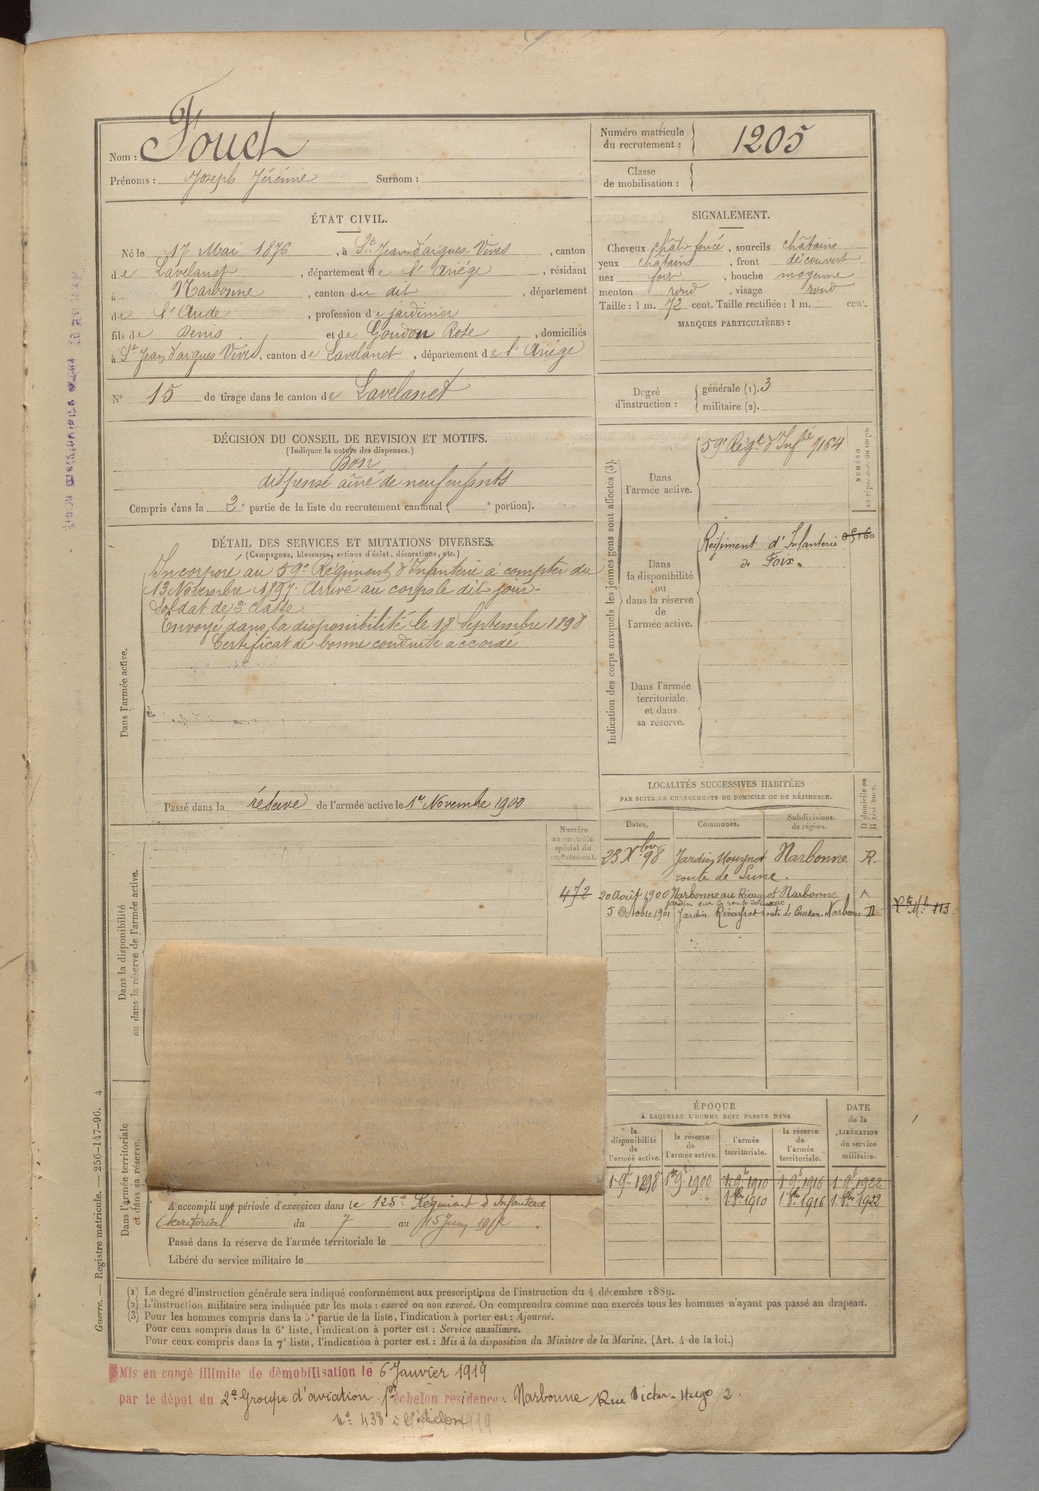 Nom : Fouet
Numéro matricule du recrutement : 1205
Prénoms : Joseph Jérémie Surnom :
Classe de mobilisation :
ÉTAT CIVIL.
Né le 17 Mai 1876, à St Jean d'aigues-Vives, canton
de Lavelanet, département de l'Ariége, résidant
à Narbonne, canton du dit, département
de l'Aude, profession de jardinier
fils de Denis et de Goudon Rose, domiciliés
à St Jean d'aigues Vives, canton de Lavelanet, département de l'Ariége
N° 15 de tirage dans le canton de Lavelanet
SIGNALEMENT.
Cheveux chât. foncé, sourcils châtains
yeux châtains, front découvert
nez fort, bouche moyenne
menton rond, visage rond
Taille : 1 m. 72 cent. Taille rectifiée : 1 m. cent.
MARQUES PARTICULIÈRES :
Degré d'instruction : générale (1). 3
militaire (2).
DÉCISION DU CONSEIL DE REVISION ET MOTIFS.
(Indiquer la nature des dispenses.)
Bon
dispensé aîné de neuf enfants
Compris dans la 2e partie de la liste du recrutement cantonal ( e portion).
DÉTAIL DES SERVICES ET MUTATIONS DIVERSES.
(Campagnes, blessures, actions d'éclat, décorations, etc.)
Dans l'armée active.
Incorporé au 59e Régiment d'Infanterie à compter du
13 Novembre 1897. Arrivé au corps le dit jour.
Soldat de 2e classe
Envoyé dans la disponibilité le 18 Septembre 1898
Certificat de bonne conduite accordé
Passé dans la réserve de l'armée active le 1er Novembre 1900
Indication des corps auxquels les jeunes gens sont affectés (3).
NUMÉRO au répertoire du corps.
Dans l'armée active.
59e Régt d'Infrie 4164
Dans la disponibilité ou dans la réserve de l'armée active.
Régiment d'Infanterie
de Foix.
Dans l'armée territoriale et dans sa réserve.
LOCALITÉS SUCCESSIVES HABITÉES
PAR SUITE DE CHANGEMENTS DE DOMICILE OU DE RÉSIDENCE.
Dates. Communes. Subdivisions de région. D domicile ou R résidence.
23 Xbre 98 Narbonne R.
20 Août 1900 Narbonne R
5 Octobre 1901 Narbonne R
Numéro au contrôle spécial du recrutement.
472
Dans la disponibilité ou dans la réserve de l'armée active.
Dans l'armée territoriale et dans sa réserve.
ÉPOQUE
À LAQUELLE L'HOMME DOIT PASSER DANS
la disponibilité de l'armée active. la réserve de l'armée active. l'armée territoriale. la réserve de l'armée territoriale.
DATE de la LIBÉRATION du service militaire.
1. 9bre 1898 1er 9bre 1900 1. 9bre 1910 1. 9bre 1916 1. 9bre 1922
1. 8bre 1910 1. 8bre 1916 1. 8bre 1922
A accompli une période d'exercices dans le 128e Régiment d'Infanterie
territorial du 7 au 15 Juin
Passé dans la réserve de l'armée territoriale le
Libéré du service militaire le
(1) Le degré d'instruction générale sera indiqué conformément aux prescriptions de l'instruction du 4 décembre 1889.
(2) L'instruction militaire sera indiquée par les mots : exercé ou non exercé. On comprendra comme non exercés tous les hommes n'ayant pas passé au drapeau.
(3) Pour les hommes compris dans la 5e partie de la liste, l'indication à porter est : Ajourné.
Pour ceux compris dans la 6e liste, l'indication à porter est : Service auxiliaire.
Pour ceux compris dans la 7e liste, l'indication à porter est : Mis à la disposition du Ministre de la Marine. (Art. 4 de la loi.)
Guerre. — Registre matricule. — 256-147-96. 4
Mis en congé illimité de démobilisation le 6 Janvier 1919
par le dépot du 2e Groupe d'aviation 1er échelon residence : Narbonne Rue Victor-Hugo 2.
N° 438